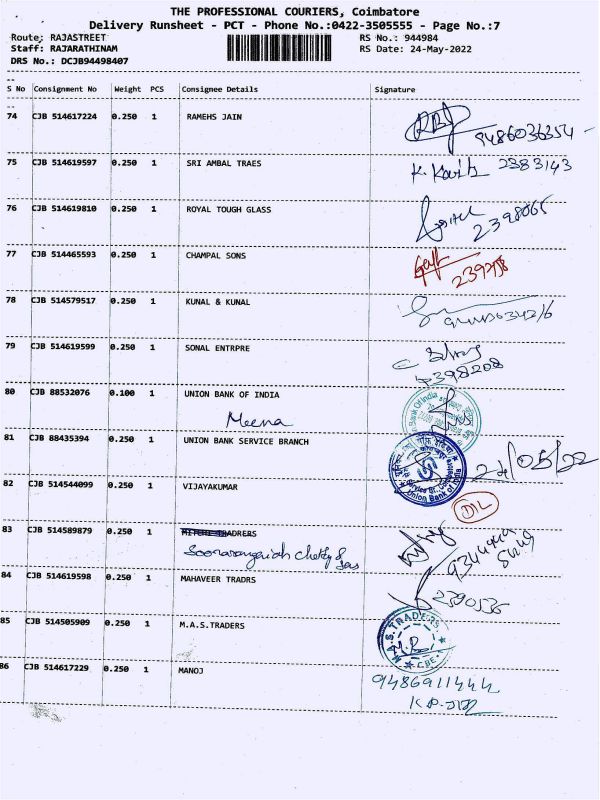 THE PROFESSIONAL COURIERS, Coimbatore
Delivery Runsheet - PCT - Phone No.:0422-3505555 - Page No.:7
Route: RAJASTREET RS No.: 944984
Staff: RAJARATHINAM RS Date: 24-May-2022
DRS No.: DCJB94498407
S No Consignment No Weight PCS Consignee Details Signature
74 CJB 514617224 0.250 1 RAMEHS JAIN 9486036354
75 CJB 514619597 0.250 1 SRI AMBAL TRAES 2383143
76 CJB 514619810 0.250 1 ROYAL TOUGH GLASS 2398065
77 CJB 514465593 0.250 1 CHAMPAL SONS
78 CJB 514579517 0.250 1 KUNAL & KUNAL
79 CJB 514619599 0.250 1 SONAL ENTRPRE 2398208
80 CJB 88532076 0.100 1 UNION BANK OF INDIA
Meena
81 CJB 88435394 0.250 1 UNION BANK SERVICE BRANCH 24/05/22
Union Bank of India
82 CJB 514544099 0.250 1 VIJAYAKUMAR D/L
83 CJB 514589879 0.250 1
84 CJB 514619598 0.250 1 MAHAVEER TRADRS 2390536
85 CJB 514505909 0.250 1 M.A.S.TRADERS
M.A.S. TRADERS CBE
86 CJB 514617229 0.250 1 MANOJ
9486911444